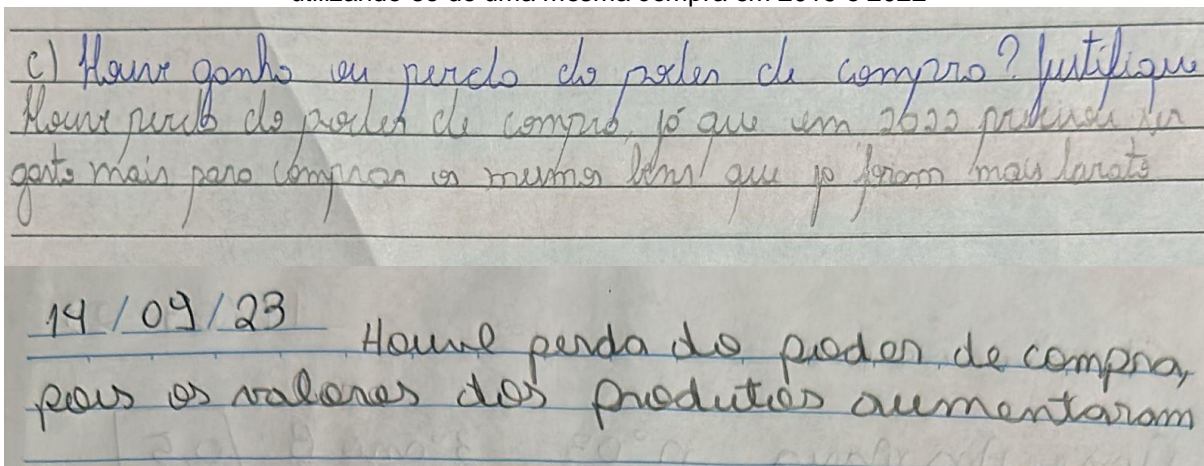 utilizando-se de uma mesma compra em 2018 e 2022
c) Houve ganho ou perda do poder de compra? Justifique
Houve perda do poder de compra, já que em 2022 precisou ser
gasto mais para comprar os mesmos bens que já foram mais barato
14/09/23 Houve perda do poder de compra,
pois os valores dos produtos aumentaram